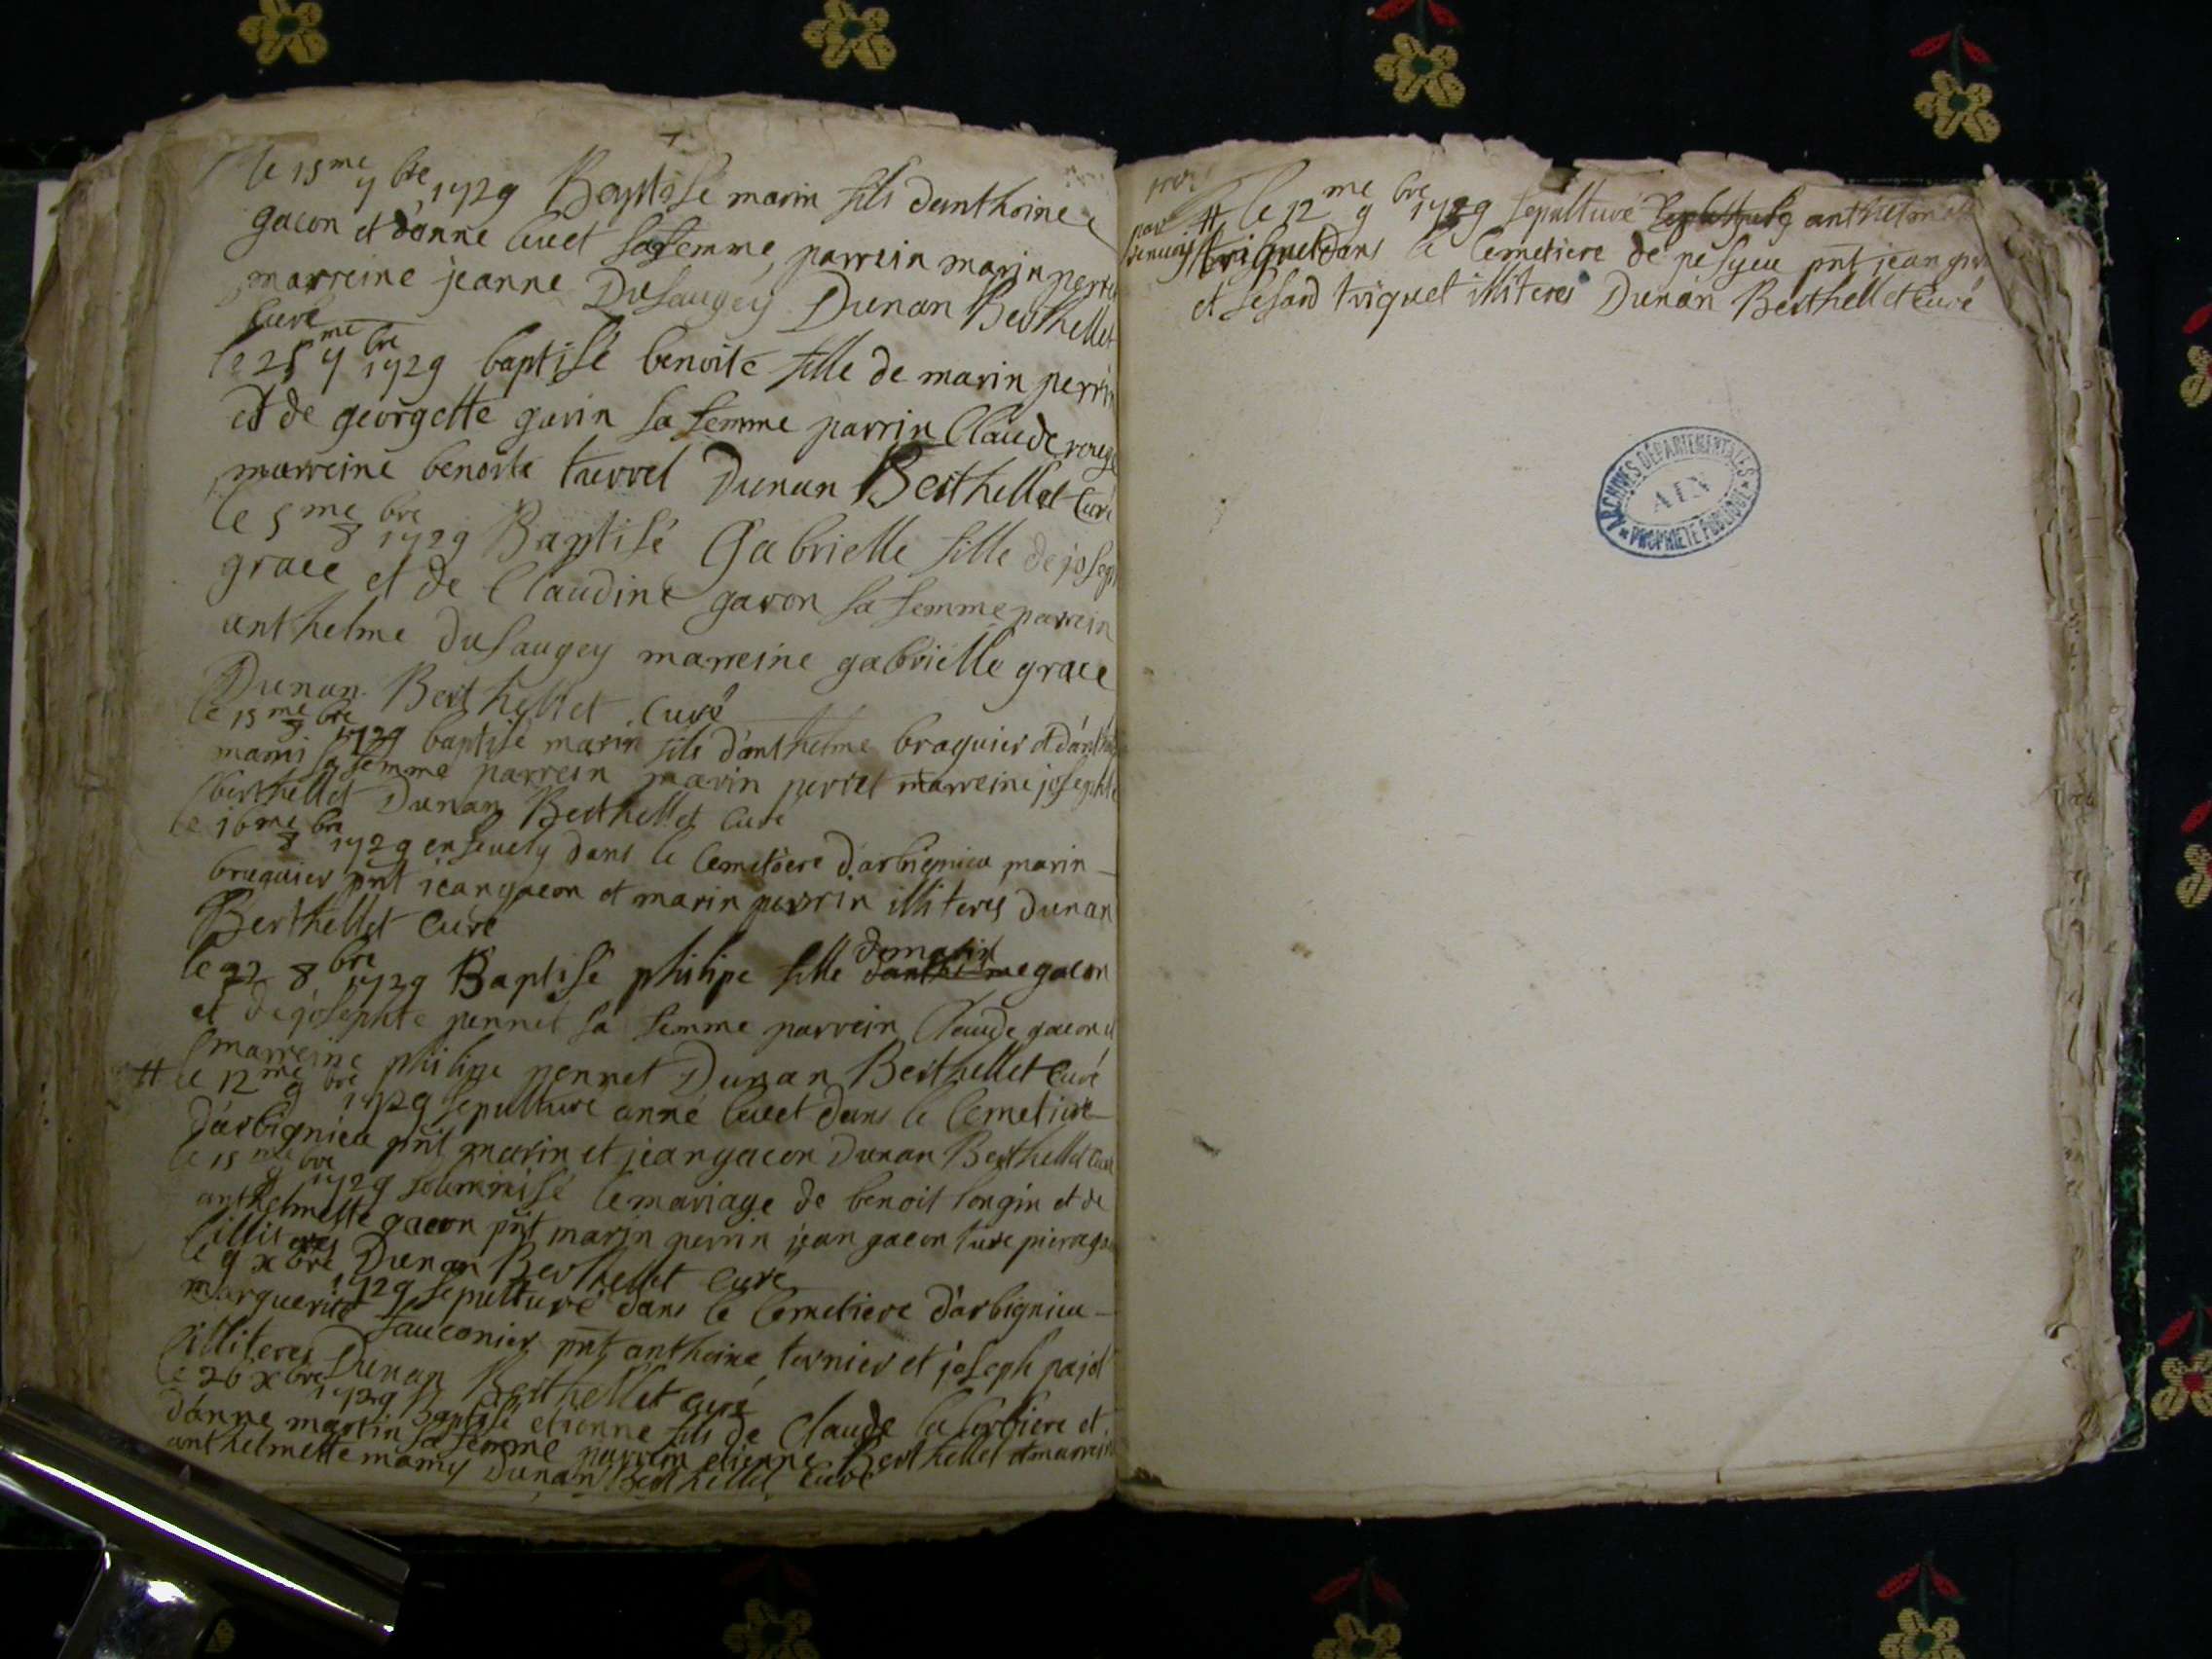 le 15me 7bre 1729 Baptisé marin fils d'anthoine
gacon et d'anne cuet sa femme, parrein marin perret
marreine jeanne Dusaugey Dunan Berthellet
Curé
le 25me 7bre 1729 baptisé benoite fille de marin perrin
et de georgette gavin sa femme parrin Claude
marreine benoite Dunan Berthellet Curé
le 5me 8bre 1729 Baptisé Gabrielle fille de joseph
grace et de Claudine gacon sa femme parrein
anthelme dusaugey marreine gabrielle grace
Dunan Berthellet Curé
le 15me 8bre 1729 baptisé marin fils d'anthelme braquier et
mami sa femme parrein marin perret marreine josephte
berthellet Dunan Berthellet Curé
le 16me 8bre 1729 ensevely dans le Cemetiere d'arbignieu marin
braquier pnt jean gacon et marin perrin illiteres Dunan
Berthellet Curé
le 22 8bre 1729 Baptisé philipe fille de marin gacon
et de josephte pennet sa femme parrein Claude gacon
marreine philipe pennet Dunan Berthellet Curé
# le 12me 9bre 1729 sepulturé anne cuet dans le Cemetiere
d'arbignieu pnt marin et jean gacon Dunan Berthellet Curé
le 15me 9bre 1729 solemnisé le mariage de benoit longin et de
anthelmette gacon pnt marin perrin jean gacon
illiteres Dunan Berthellet Curé
le 9 xbre 1729 sepulturé dans le Cemetiere d'arbignieu
marguerite fauconier pnt anthoine tornier et joseph pajol
illiteres Dunan Berthellet Curé
le 26 xbre 1729 Baptisé etienne fils de Claude la Corbiere et
d'anne martin sa femme parrein etienne Berthellet et marrein
anthelmette mamy Dunan Berthellet Curé
# le 12me 9bre 1729 sepulturé anthelmette
triquet dans le Cemetiere de pesyeu pnt jean
et triquet illiteres Dunan Berthellet Curé
ARCHIVES DÉPARTEMENTALES
AIN
PROPRIÉTÉ PUBLIQUE